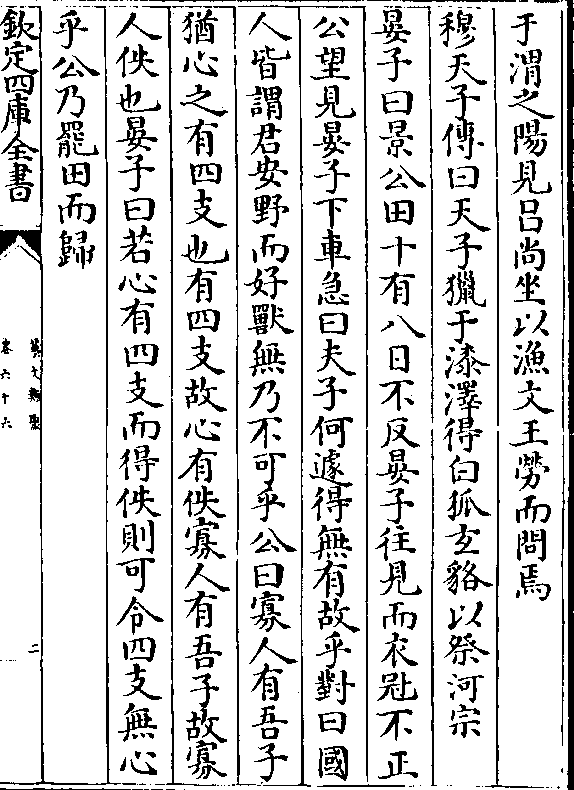 于渭之陽見呂尚坐以漁文王勞而問焉
穆天子傳曰天子獵于漆澤得白狐玄貉以祭河宗
晏子曰景公田十有八日不反晏子往見而衣冠不正
公望見晏子下車急曰夫子何遽得無有故乎對曰國
人皆謂君安野而好獸無乃不可乎公曰寡人有吾子
猶心之有四支也有四支故心有佚寡人有吾子故寡
人佚也晏子曰若心有四支而得佚則可令四支無心
乎公乃罷田而歸
欽定四庫全書
藝文類聚
卷六十六
二